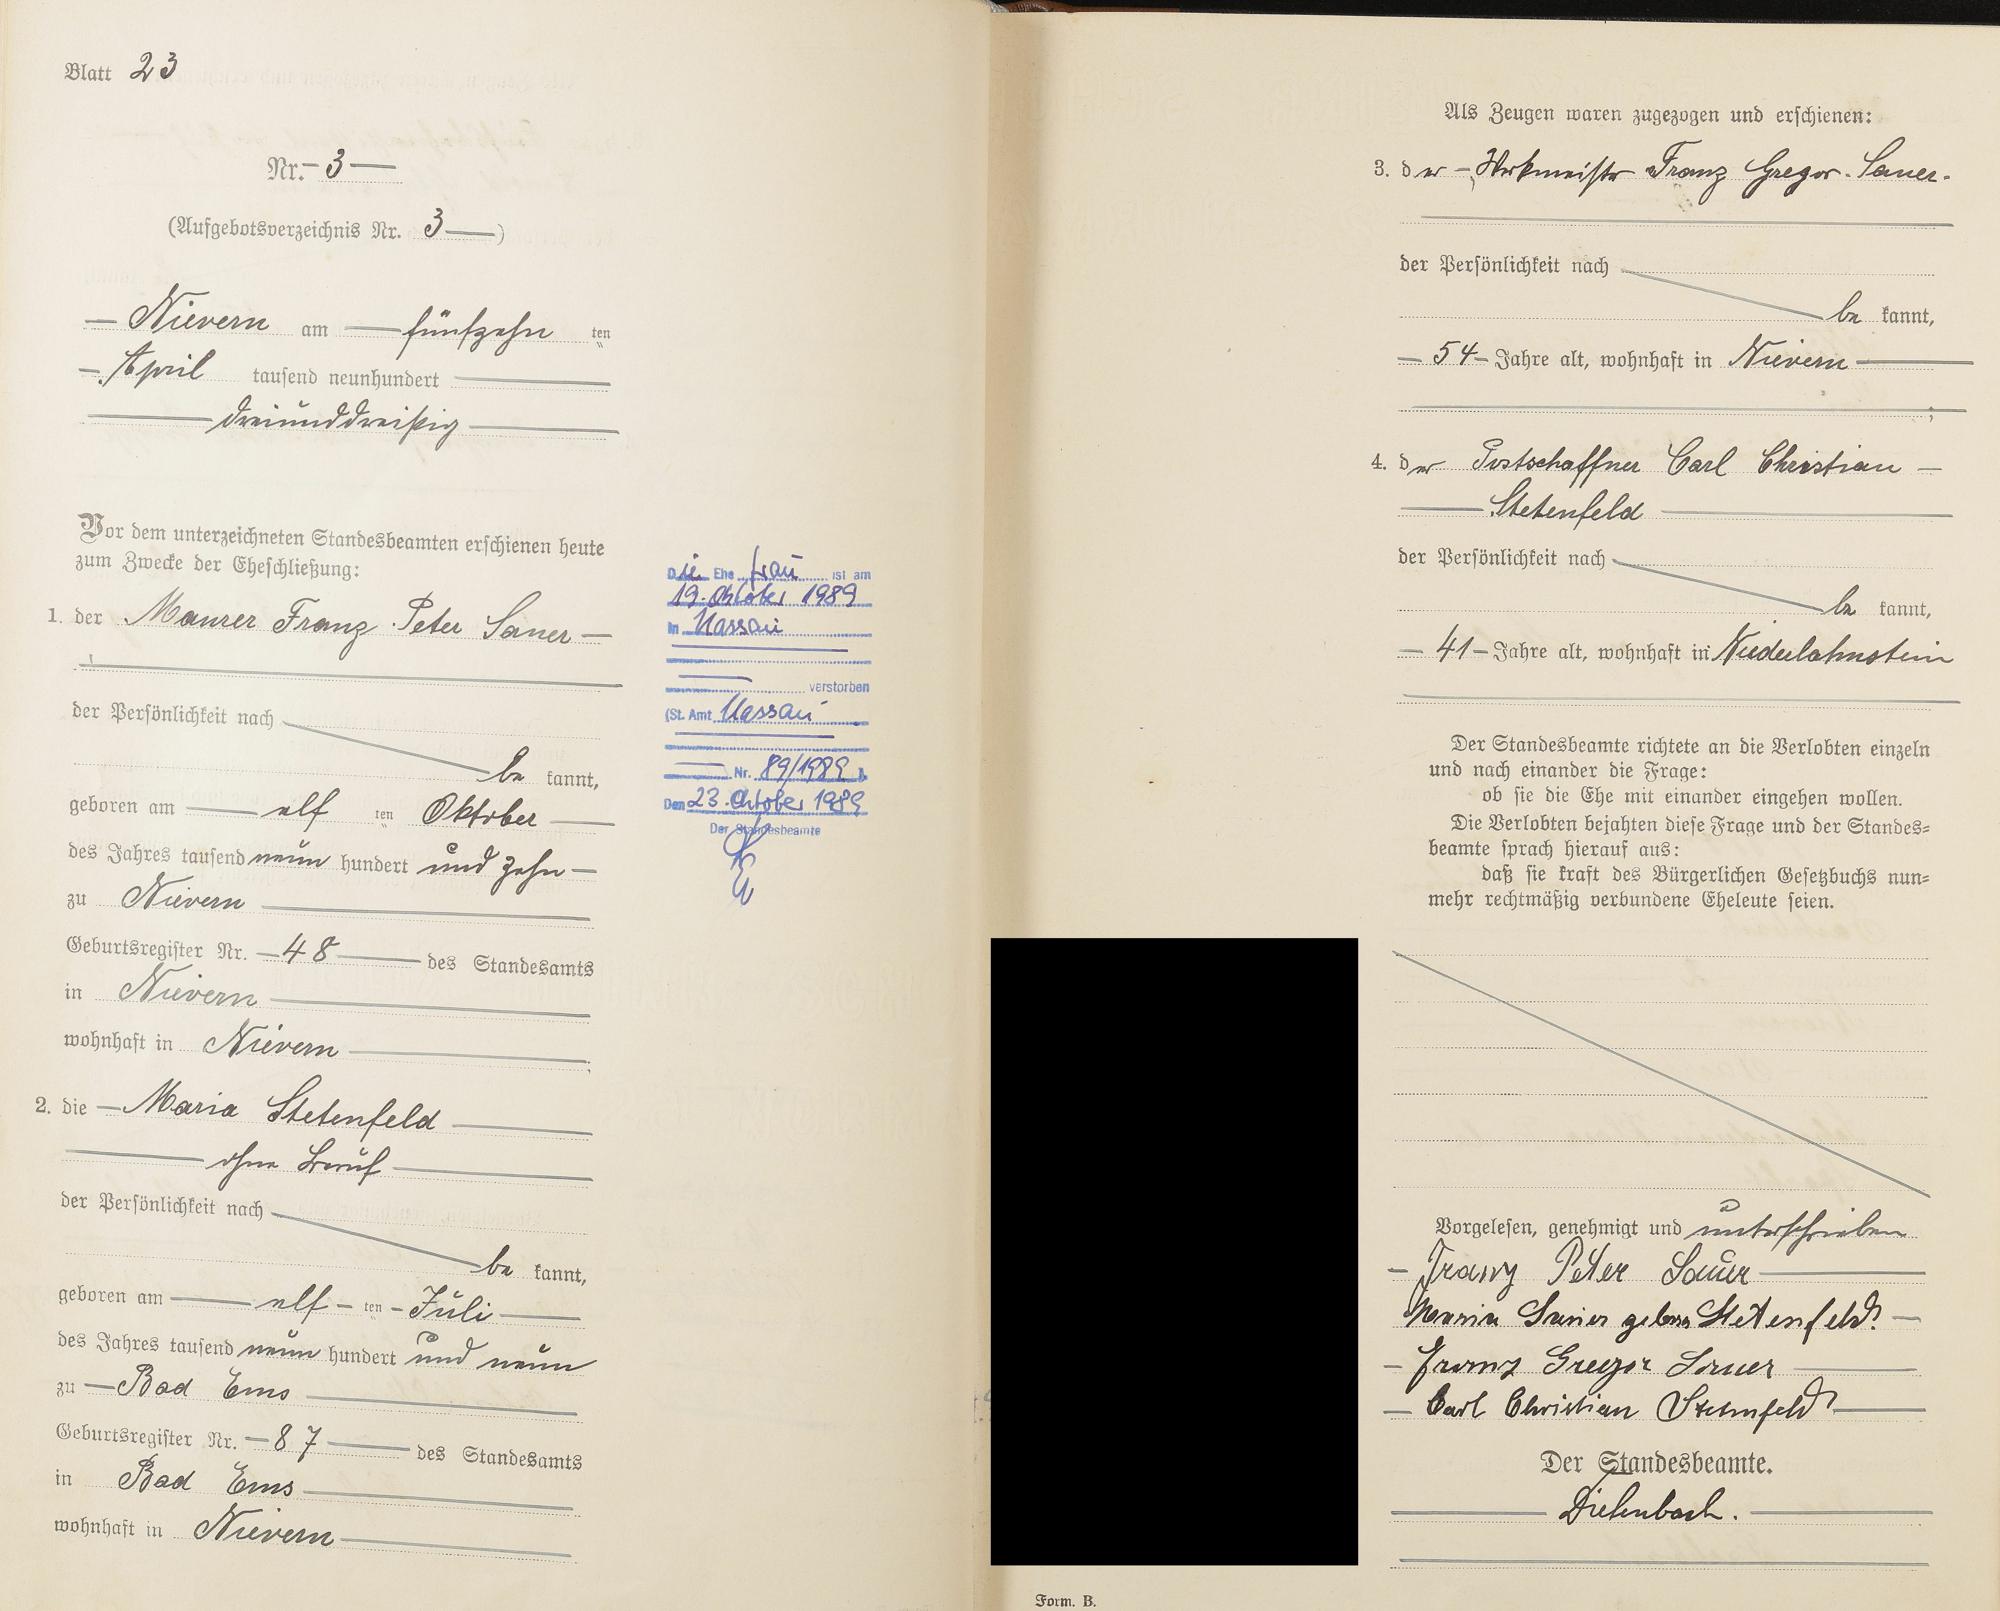 Blatt 23
Nr. 3
(Aufgebotsverzeichnis Nr. 3)
Nievern am fünfzehn ten
April tausend neunhundert
dreiunddreißig
Vor dem unterzeichneten Standesbeamten erschienen heute
zum Zwecke der Eheschließung:
1. der Maurer Franz Peter Sauer
der Persönlichkeit nach
be kannt,
geboren am elf ten Oktober
des Jahres tausend neun hundert und zehn
zu Nievern
Geburtsregister Nr. 48 des Standesamts
in Nievern
wohnhaft in Nievern
2. die Maria Stetenfeld
ohne Beruf
der Persönlichkeit nach
be kannt,
geboren am elf ten Juli
des Jahres tausend neun hundert und neun
zu Bad Ems
Geburtsregister Nr. 87 des Standesamts
in Bad Ems
wohnhaft in Nievern
Die Ehe frau ist am
19. Oktober 1989
in Nassau
verstorben
(St. Amt Nassau
Nr. 89/1989 ).
Den 23. Oktober 1989
Der Standesbeamte
Als Zeugen waren zugezogen und erschienen:
3. der Werkmeister Franz Gregor Sauer
der Persönlichkeit nach
be kannt,
54 Jahre alt, wohnhaft in Nievern
;
4. der Postschaffner Carl Christian
Stetenfeld
der Persönlichkeit nach
be kannt,
41 Jahre alt, wohnhaft in Niederlahnstein
Der Standesbeamte richtete an die Verlobten einzeln
und nach einander die Frage:
ob sie die Ehe mit einander eingehen wollen.
Die Verlobten bejahten diese Frage und der Standes=
beamte sprach hierauf aus:
daß sie kraft des Bürgerlichen Gesetzbuchs nun=
mehr rechtmäßig verbundene Eheleute seien.
Vorgelesen, genehmigt und unterschrieben
Franz Peter Sauer
Maria Sauer geborn Stetenfeld.
Franz Gregor Sauer
Carl Christian Stetenfeld
Der Standesbeamte.
Diefenbach.
Form. B.